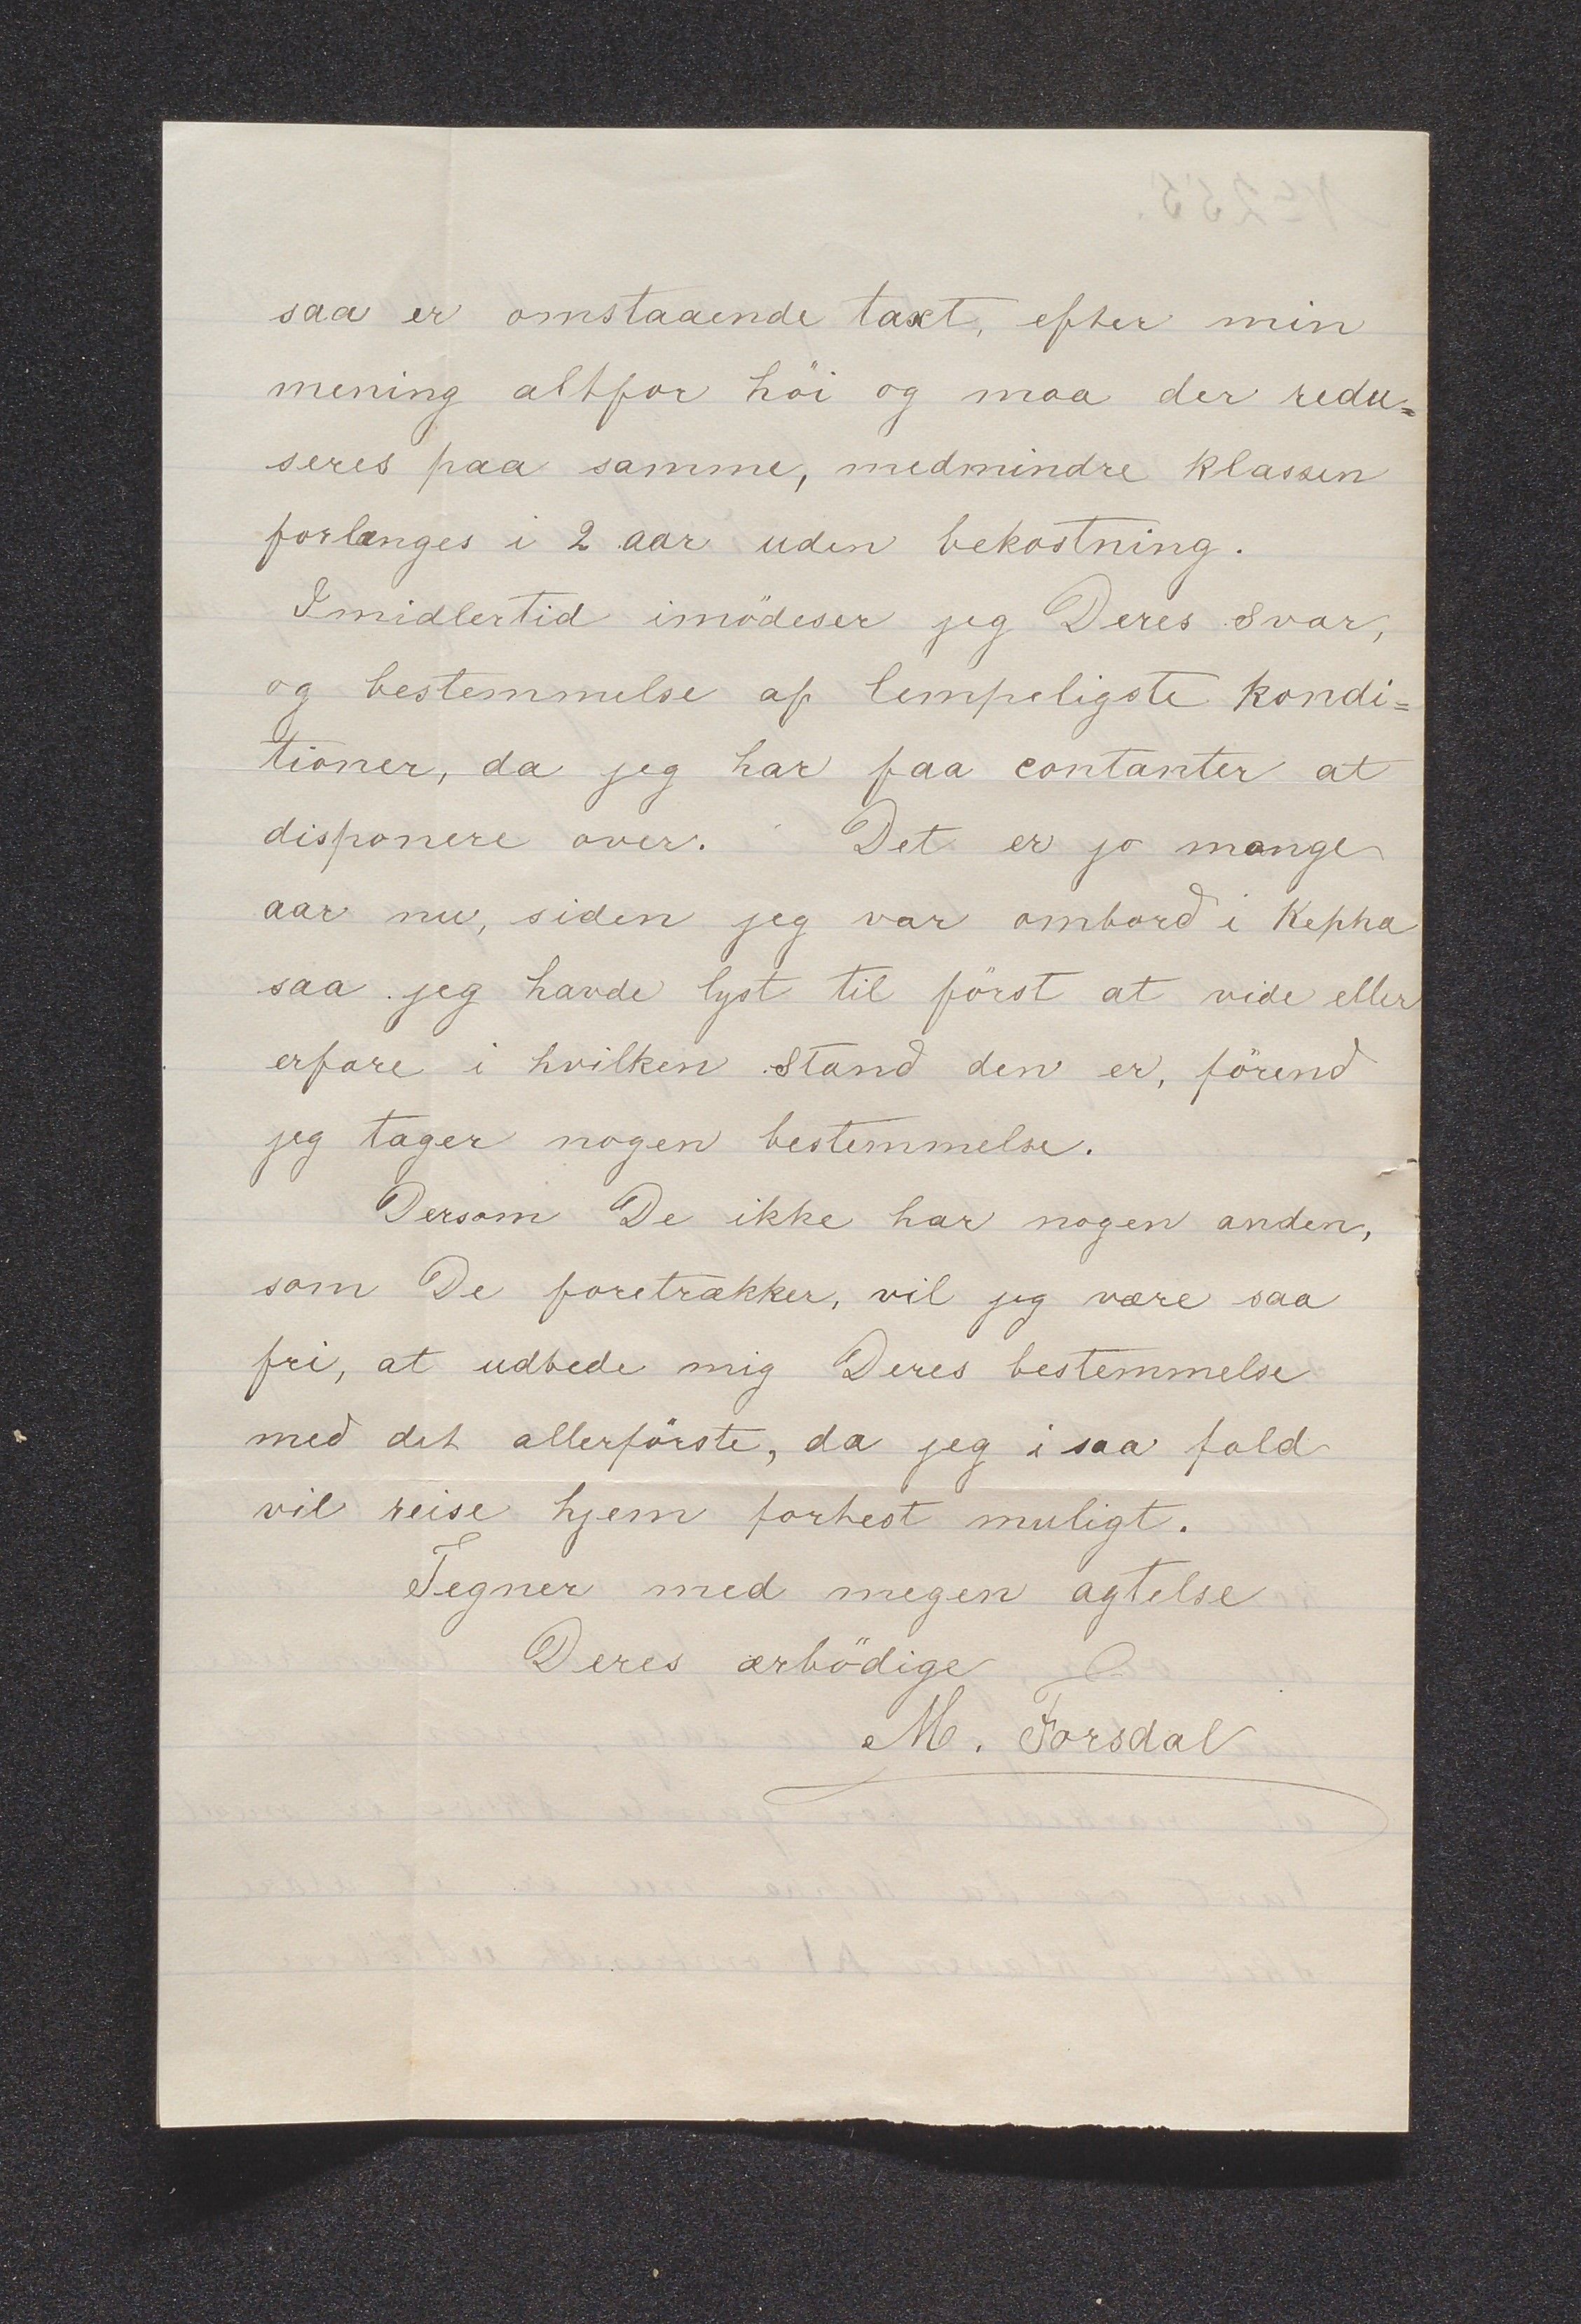 saa er omstaaende taxt, efter min
mening altfor höi og maa der redu=
seres paa samme, medmindre klassen
forlænges i 2 aar uden bekostning.
Imidlertid imödeser jeg Deres Svar,
og bestemmelse af lempeligste kondi=
tioner, da jeg har faa contanter at
disponere over. Det er jo mange
aar nu, siden jeg var ombord i Kepha
saa jeg havde lyst til först at vide eller
erfare i hvilken Stand den er, förend
jeg tager nogen bestemmelse.
Dersom De ikke har nogen anden,
som De foretrækker, vil jeg være saa
fri, at udbede mig Deres bestemmelse
med det allerförste, da jeg i saa fald
vil reise hjem fortest muligt.
Tegner med megen agtelse
Deres ærbödige
M. Forsdal